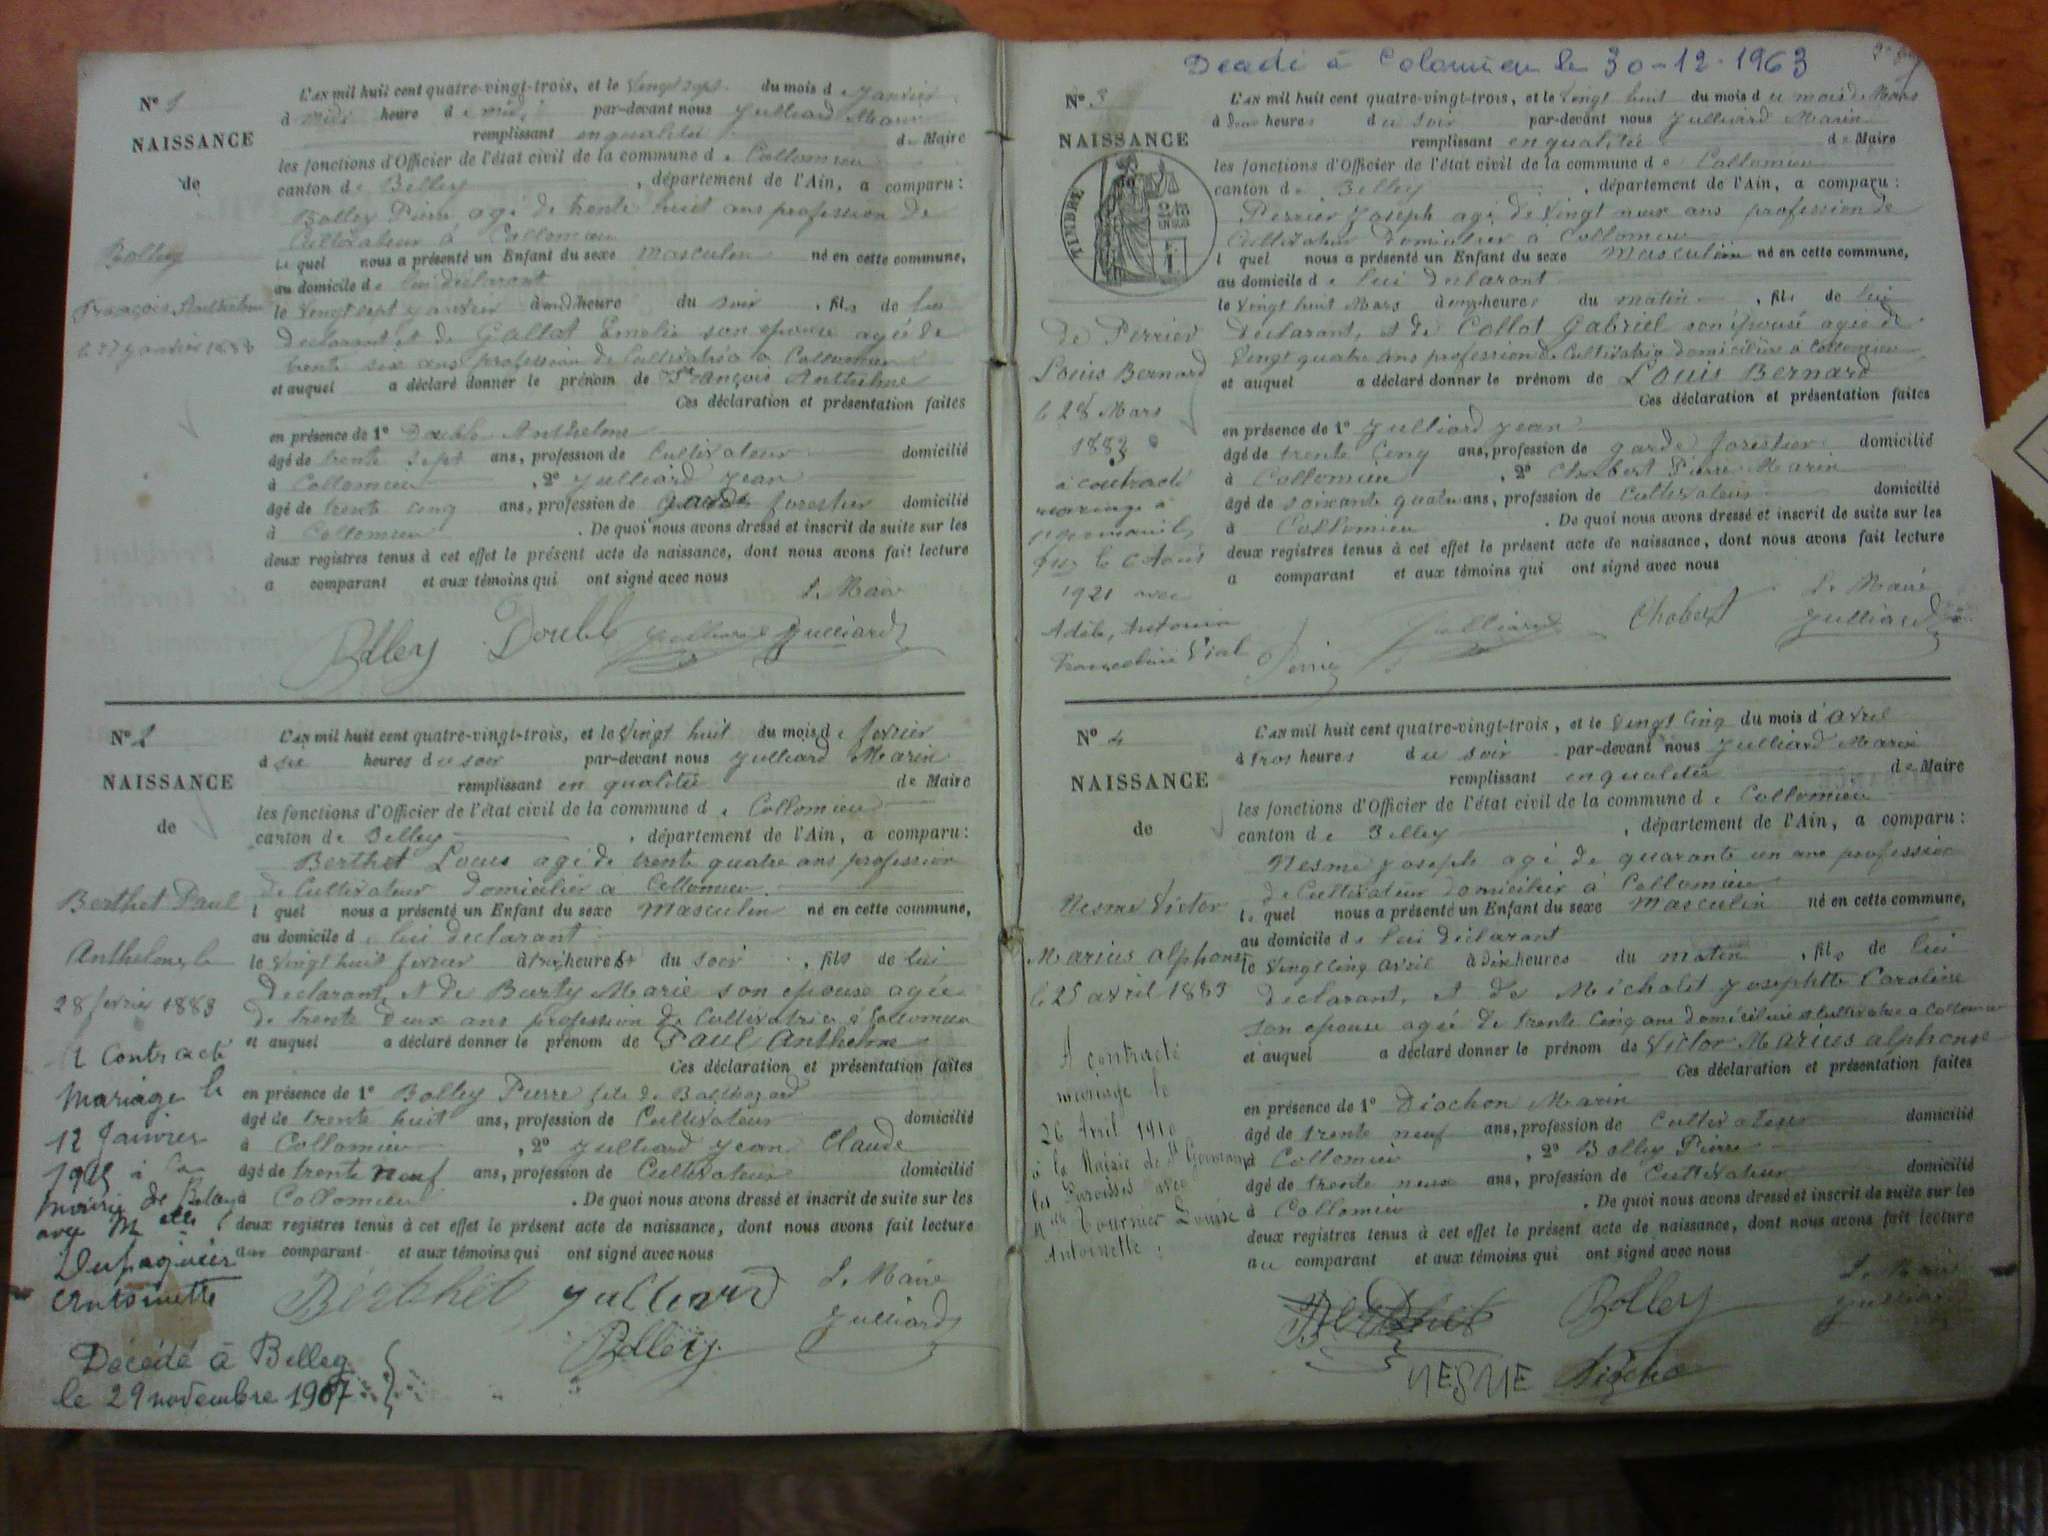 N° 1
NAISSANCE
de
Bolley
François Anthelme
le 27 janvier 1883
L'AN mil huit cent quatre-vingt-trois, et le Vingt sept du mois de janvier
à midi heure de midi par-devant nous Julliard Marin
remplissant en qualitée de Maire
les fonctions d'Officier de l'état civil de la commune de Collomieu
canton de Belley, département de l'Ain, a comparu :
Bolley Pierre agé de trente huit ans profession de
Cultivateur à Collomieu
le quel nous a présenté un Enfant du sexe Masculin né en cette commune,
au domicile de lui déclarant
le Vingt sept janvier à heure du soir, fils de lui
declarant et de Gallat Emelie son epouse agée de
trente six ans profession de Cultivatrice à Collomieu
et auquel a déclaré donner le prénom de François Anthelme
Ces déclaration et présentation faites
en présence de 1° Double Anthelme
âgé de trente sept ans, profession de Cultivateur domicilié
à Collomieu, 2° Julliard Jean
âgé de trente cinq ans, profession de garde forestier domicilié
à Collomieu. De quoi nous avons dressé et inscrit de suite sur les
deux registres tenus à cet effet le présent acte de naissance, dont nous avons fait lecture
a comparant et aux témoins qui ont signé avec nous
Le Maire
Bolley Double Julliard Julliard
N° 2
NAISSANCE
de
Berthet Paul
Anthelme le
28 fevrier 1883
A Contracté
Mariage le
12 Janvier
à la
mairie de
avec Melle
Dupaquier
Antoinette
Décédé à Belley
le 29 novembre 1967
L'AN mil huit cent quatre-vingt-trois, et le Vingt huit du mois de fevrier
à six heures du soir par-devant nous Julliard Marin
remplissant en qualitée de Maire
les fonctions d'Officier de l'état civil de la commune de Collomieu
canton de Belley, département de l'Ain, a comparu :
Berthet Louis agé de trente quatre ans profession
de Cultivateur domicilier à Collomieu
l quel nous a présenté un Enfant du sexe Masculin né en cette commune,
au domicile de lui declarant
le Vingt huit fevrier à heures du soir, fils de lui
Declarant, et de Burty Marie son epouse agée
de trente deux ans profession de Cultivatrice à Collomieu
et auquel a déclaré donner le prénom de Paul Anthelme
Ces déclaration et présentation faites
en présence de 1° Bolley Pierre fils de Balthazard
âgé de trente huit ans, profession de Cultivateur domicilié
à Collomieu, 2° Julliard Jean Claude
âgé de trente neuf ans, profession de Cultivateur domicilié
à Collomieu. De quoi nous avons dressé et inscrit de suite sur les
deux registres tenus à cet effet le présent acte de naissance, dont nous avons fait lecture
aux comparant et aux témoins qui ont signé avec nous
Berthet Julliard Le Maire
Bolley Julliard
Décédé à Colomieu le 30-12-1963
N° 3
NAISSANCE
TIMBRE
de Perrier
Louis Bernard
le 28 Mars
1883
a contracté
mariage à
le 6 Août
1921 avec
Adèle, Antonia
Franceline Vial
L'AN mil huit cent quatre-vingt-trois, et le Vingt huit du mois d u mois de Mars
à deux heures du soir par-devant nous Julliard Marin
remplissant en qualitée de Maire
les fonctions d'Officier de l'état civil de la commune de Collomieu
canton de Belley, département de l'Ain, a comparu :
Perrier Joseph agé de Vingt neuf ans profession de
Cultivateur domicilier à Collomieu
l quel nous a présenté un Enfant du sexe Masculin né en cette commune,
au domicile de lui declarant
le Vingt huit Mars à onze heures du matin, fils de lui
Declarant, et de Collot Gabriel son épouse agée de
Vingt quatre ans profession de Cultivatrice domicilière à Collomieu
et auquel a déclaré donner le prénom de Louis Bernard
Ces déclaration et présentation faites
en présence de 1° Julliard Jean
âgé de trente Cinq ans, profession de garde forestier domicilié
à Collomieu, 2° Chabert Pierre Marin
âgé de soixante quatre ans, profession de Cultivateur domicilié
à Collomieu. De quoi nous avons dressé et inscrit de suite sur les
deux registres tenus à cet effet le présent acte de naissance, dont nous avons fait lecture
a comparant et aux témoins qui ont signé avec nous
Le Maire
Perrier Julliard Chabert Julliard
N° 4
NAISSANCE
de
Nesme Victor
Marius alphonse
le 25 avril 1883
A contracté
mariage le
26 Avril 1910
à la Mairie de St Germain
les Paroisses avec
Melle Tournier Louise
Antoinette.
L'AN mil huit cent quatre-vingt-trois, et le Vingt Cinq du mois d'avril
à trois heures du soir par-devant nous Julliard Marin
remplissant en qualitée de Maire
les fonctions d'Officier de l'état civil de la commune de Collomieu
canton de Belley, département de l'Ain, a comparu :
Nesme Joseph agé de quarante un ans profession
de Cultivateur domicilier à Collomieu
le quel nous a présenté un Enfant du sexe Masculin né en cette commune,
au domicile de lui déclarant
le Vingt Cinq avril à dix heures du matin, fils de lui
declarant, et de Micholet Josephtte Caroline
son epouse agée de trente Cinq ans domicilière et cultivatrice à Collomieu
et auquel a déclaré donner le prénom de Victor Marius alphonse
Ces déclaration et présentation faites
en présence de 1° Diochon Marin
âgé de trente neuf ans, profession de Cultivateur domicilié
à Collomieu, 2° Bolley Pierre
âgé de trente neuf ans, profession de Cultivateur domicilié
à Collomieu. De quoi nous avons dressé et inscrit de suite sur les
deux registres tenus à cet effet le présent acte de naissance, dont nous avons fait lecture
au comparant et aux témoins qui ont signé avec nous
Le Maire
Berthet Bolley Julliard
NESME